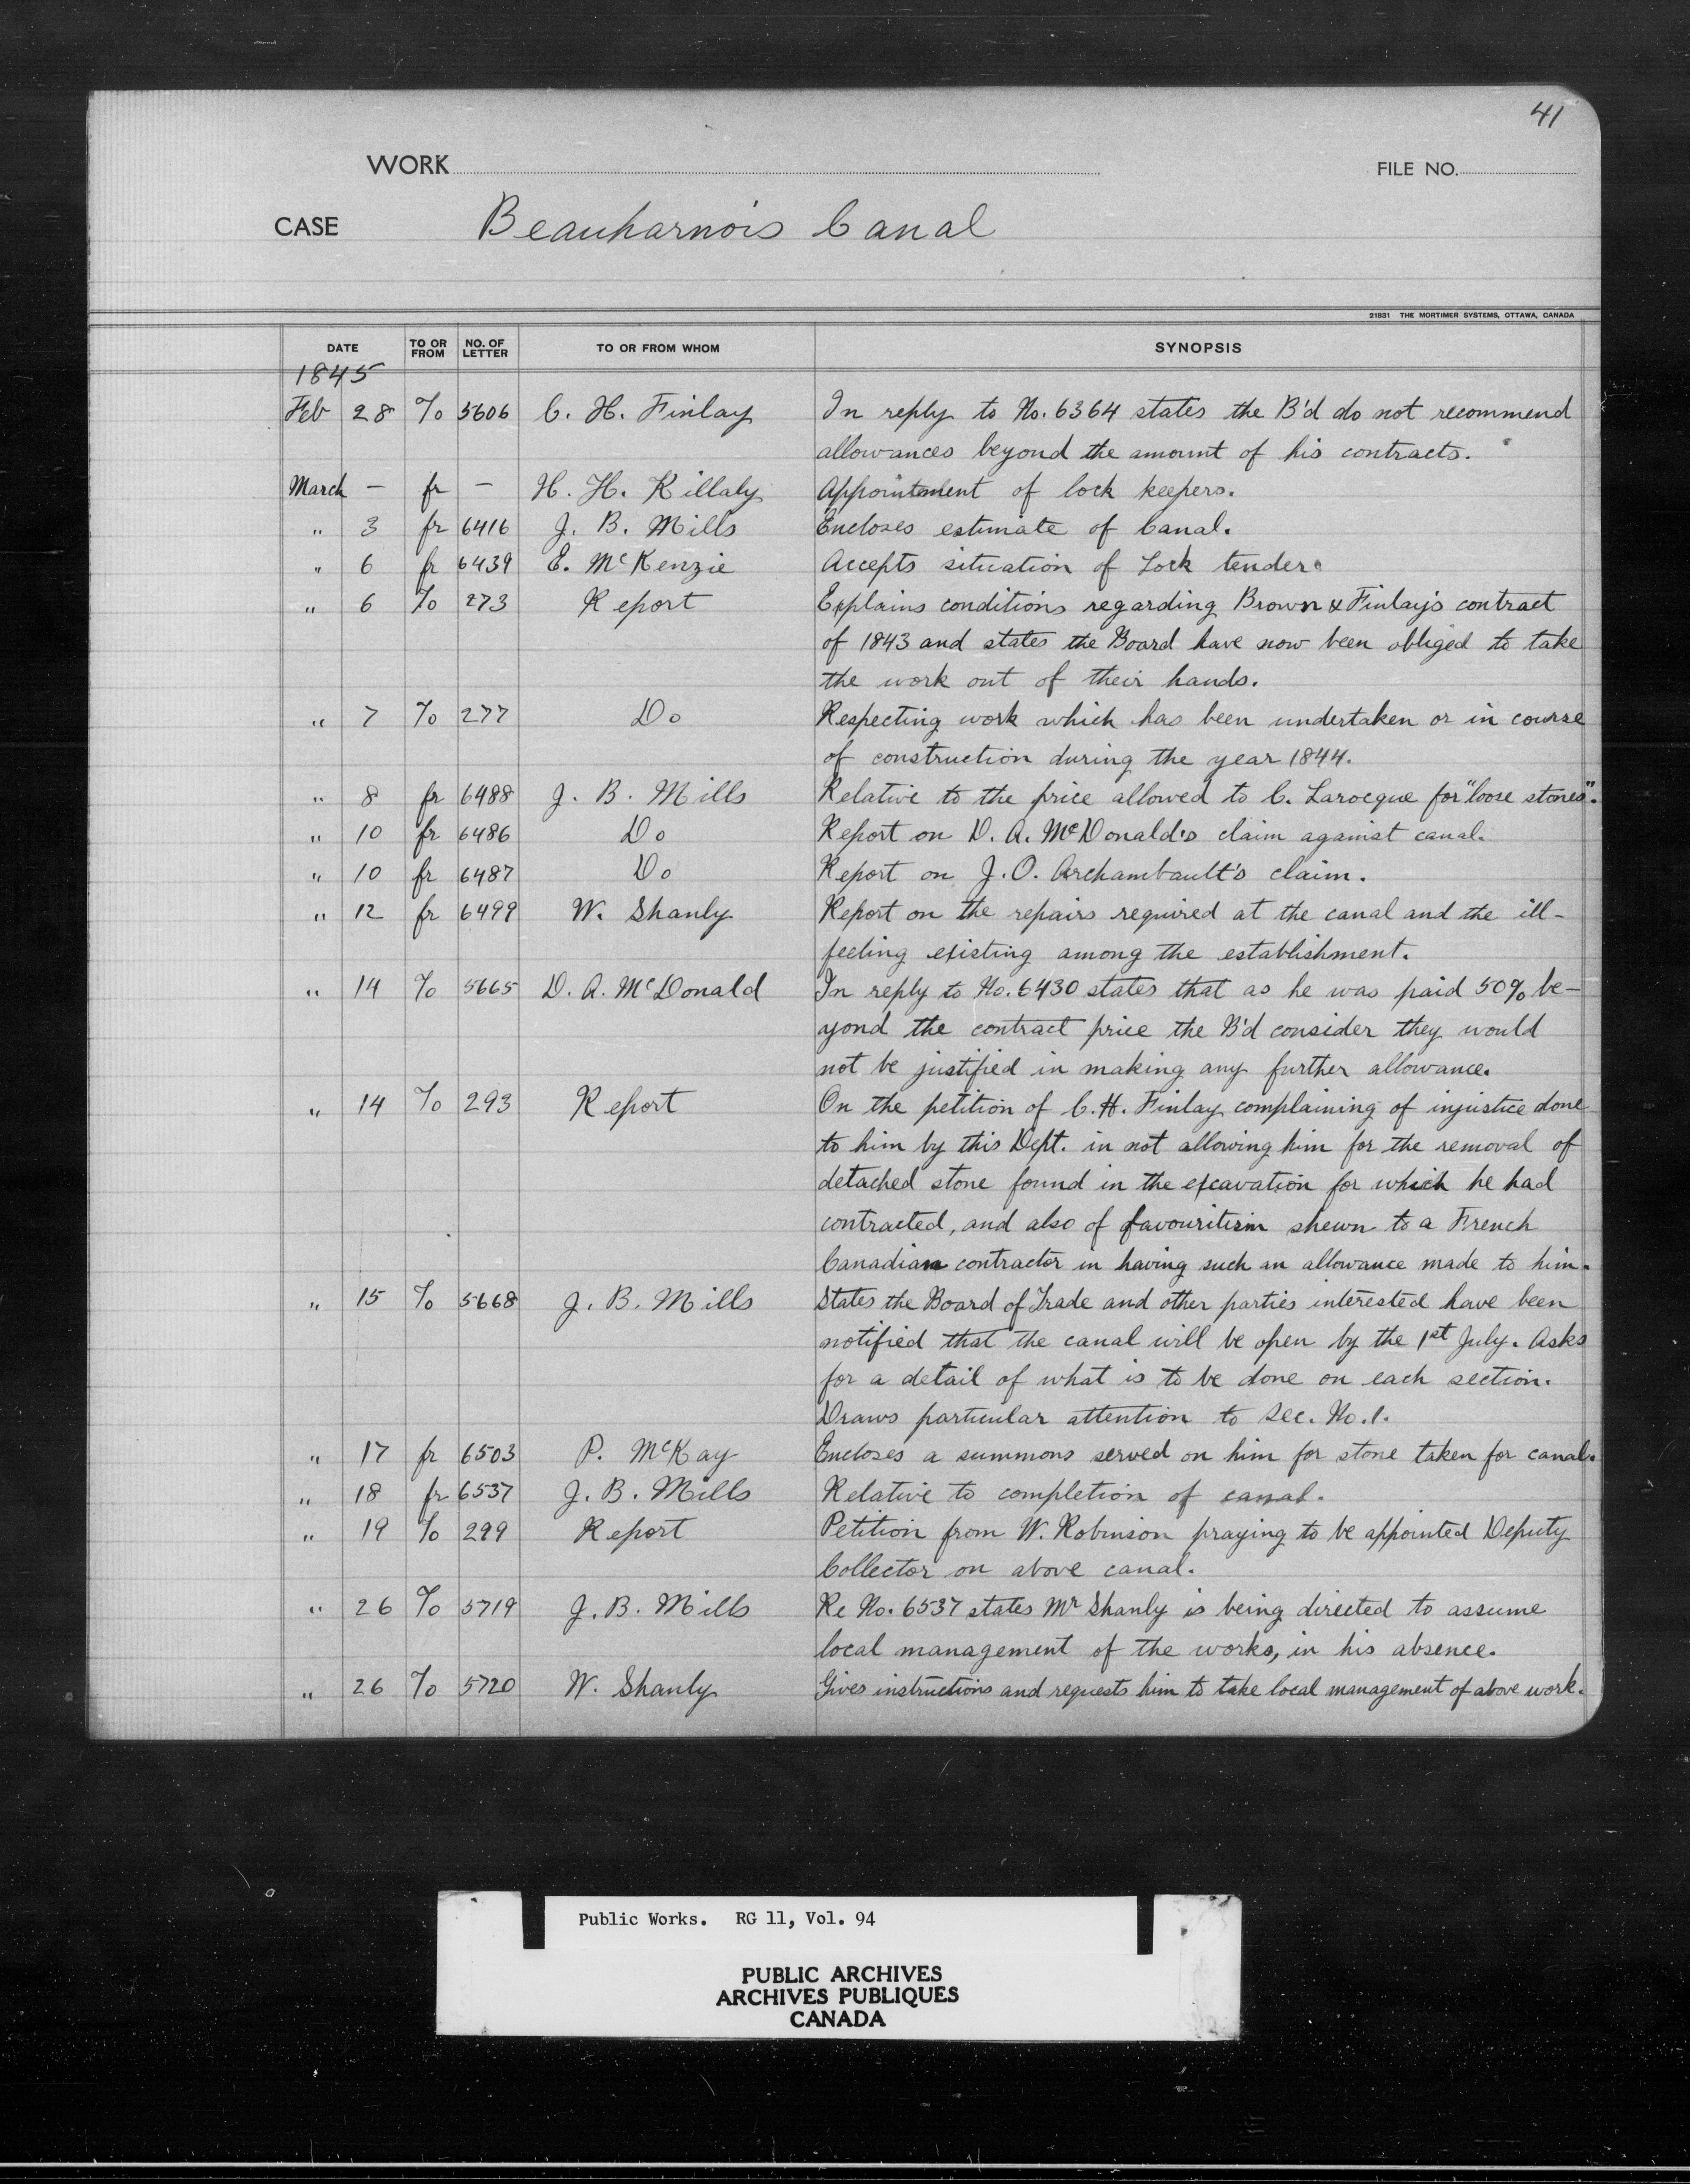 41
WORK FILE NO.
CASE Beauharnois Canal
21831 THE MORTIMER SYSTEMS, OTTAWA, CANADA
DATE TO OR FROM NO. OF LETTER TO OR FROM WHOM SYNOPSIS
1845
Feb 28 To 5606 C. H. Finlay In reply to No. 6364 states the B'd do not recommend
allowances beyond the amount of his contracts.
March - fr - H. H. Killaly Appointment of lock keepers.
" 3 fr 6416 J. B. Mills Encloses estimate of Canal.
" 6 fr 6439 E. McKenzie Accepts situation of Lock tender.
" 6 To 273 Report Explains conditions regarding Brown & Finlay's contract
of 1843 and states the Board have now been obliged to take
the work out of their hands.
" 7 To 277 Do Respecting work which has been undertaken or in course
of construction during the year 1844.
" 8 fr 6488 J. B. Mills Relative to the price allowed to C. Larocque for "loose stones".
" 10 fr 6486 Do Report on D. A. McDonald's claim against canal.
" 10 fr 6487 Do Report on J. O. Archambault's claim.
" 12 fr 6499 W. Shanly Report on the repairs required at the canal and the ill-
feeling existing among the establishment.
" 14 To 5665 D. A. McDonald In reply to No. 6430 states that as he was paid 50% be-
yond the contract price the B'd consider they would
not be justified in making any further allowance.
" 14 To 293 Report On the petition of C. H. Finlay complaining of injustice done
to him by this Dept. in not allowing him for the removal of
detached stone found in the excavation for which he had
contracted, and also of favouritism shewn to a French
Canadian contractor in having such an allowance made to him.
" 15 To 5668 J. B. Mills States the Board of Trade and other parties interested have been
notified that the canal will be open by the 1st July. Asks
for a detail of what is to be done on each section.
Draws particular attention to Sec. No. 1.
" 17 fr 6503 P. McKay Encloses a summons served on him for stone taken for canal.
" 18 fr 6537 J. B. Mills Relative to completion of canal.
" 19 To 299 Report Petition from W. Robinson praying to be appointed Deputy
Collector on above canal.
" 26 To 5719 J. B. Mills Re No. 6537 states Mr Shanly is being directed to assume
local management of the works, in his absence.
" 26 To 5720 W. Shanly Gives instructions and requests him to take local management of above work.
Public Works. RG 11, Vol. 94
PUBLIC ARCHIVES
ARCHIVES PUBLIQUES
CANADA